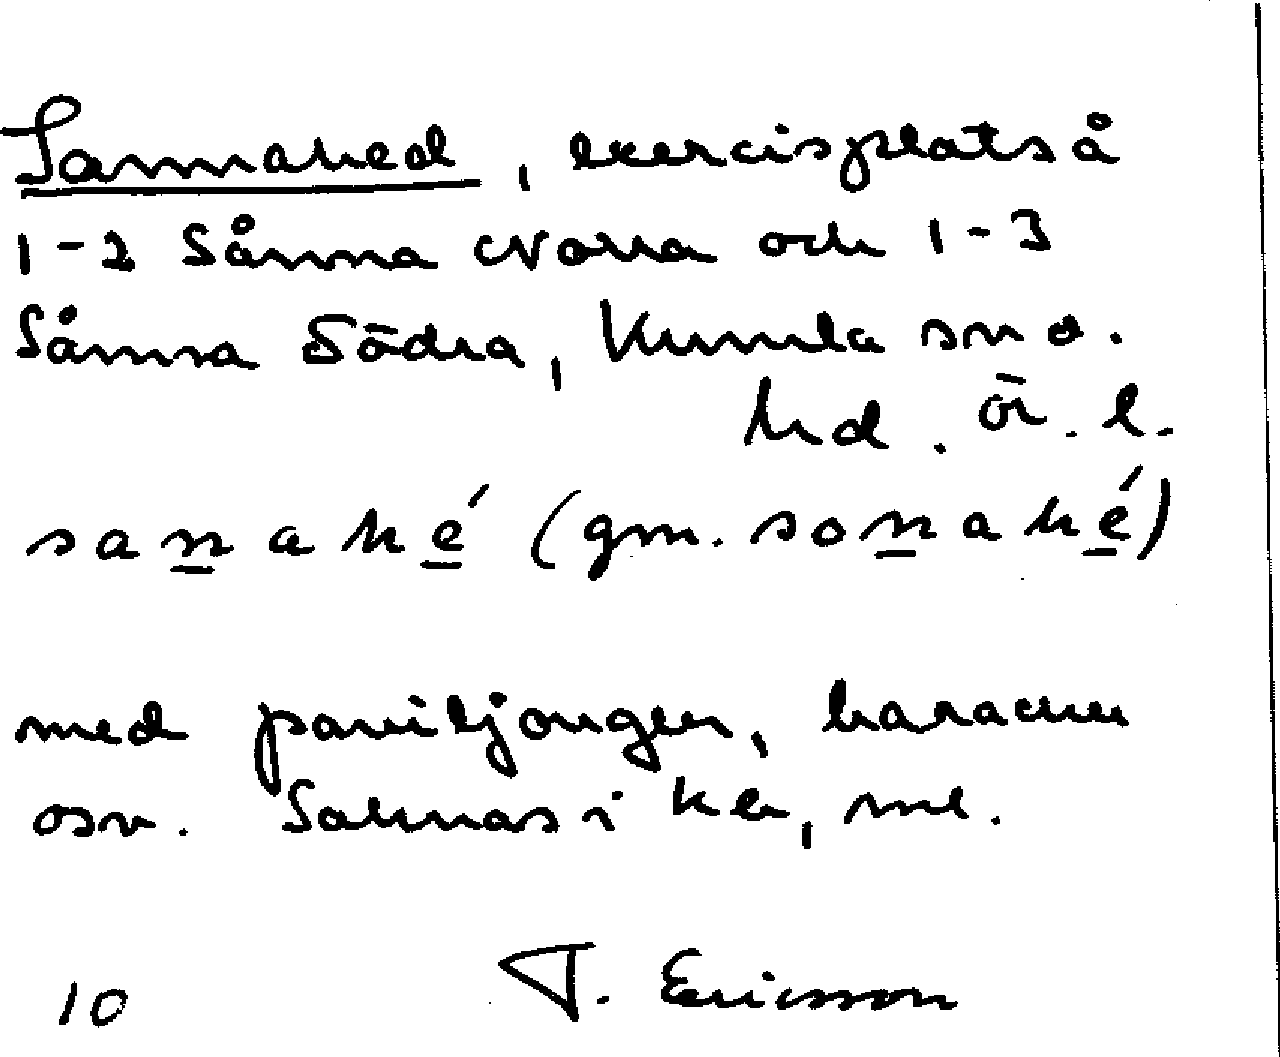 Sannahed, exercisplats å
1-2 Sånna Norra och 1-3
Sånna Södra, Kumla sn o.
hd. Ör. l.
sanahé (gm. sonahé)
med paviljonger, baracker
osv. Saknas i ke, ml.
10 T. Ericsson